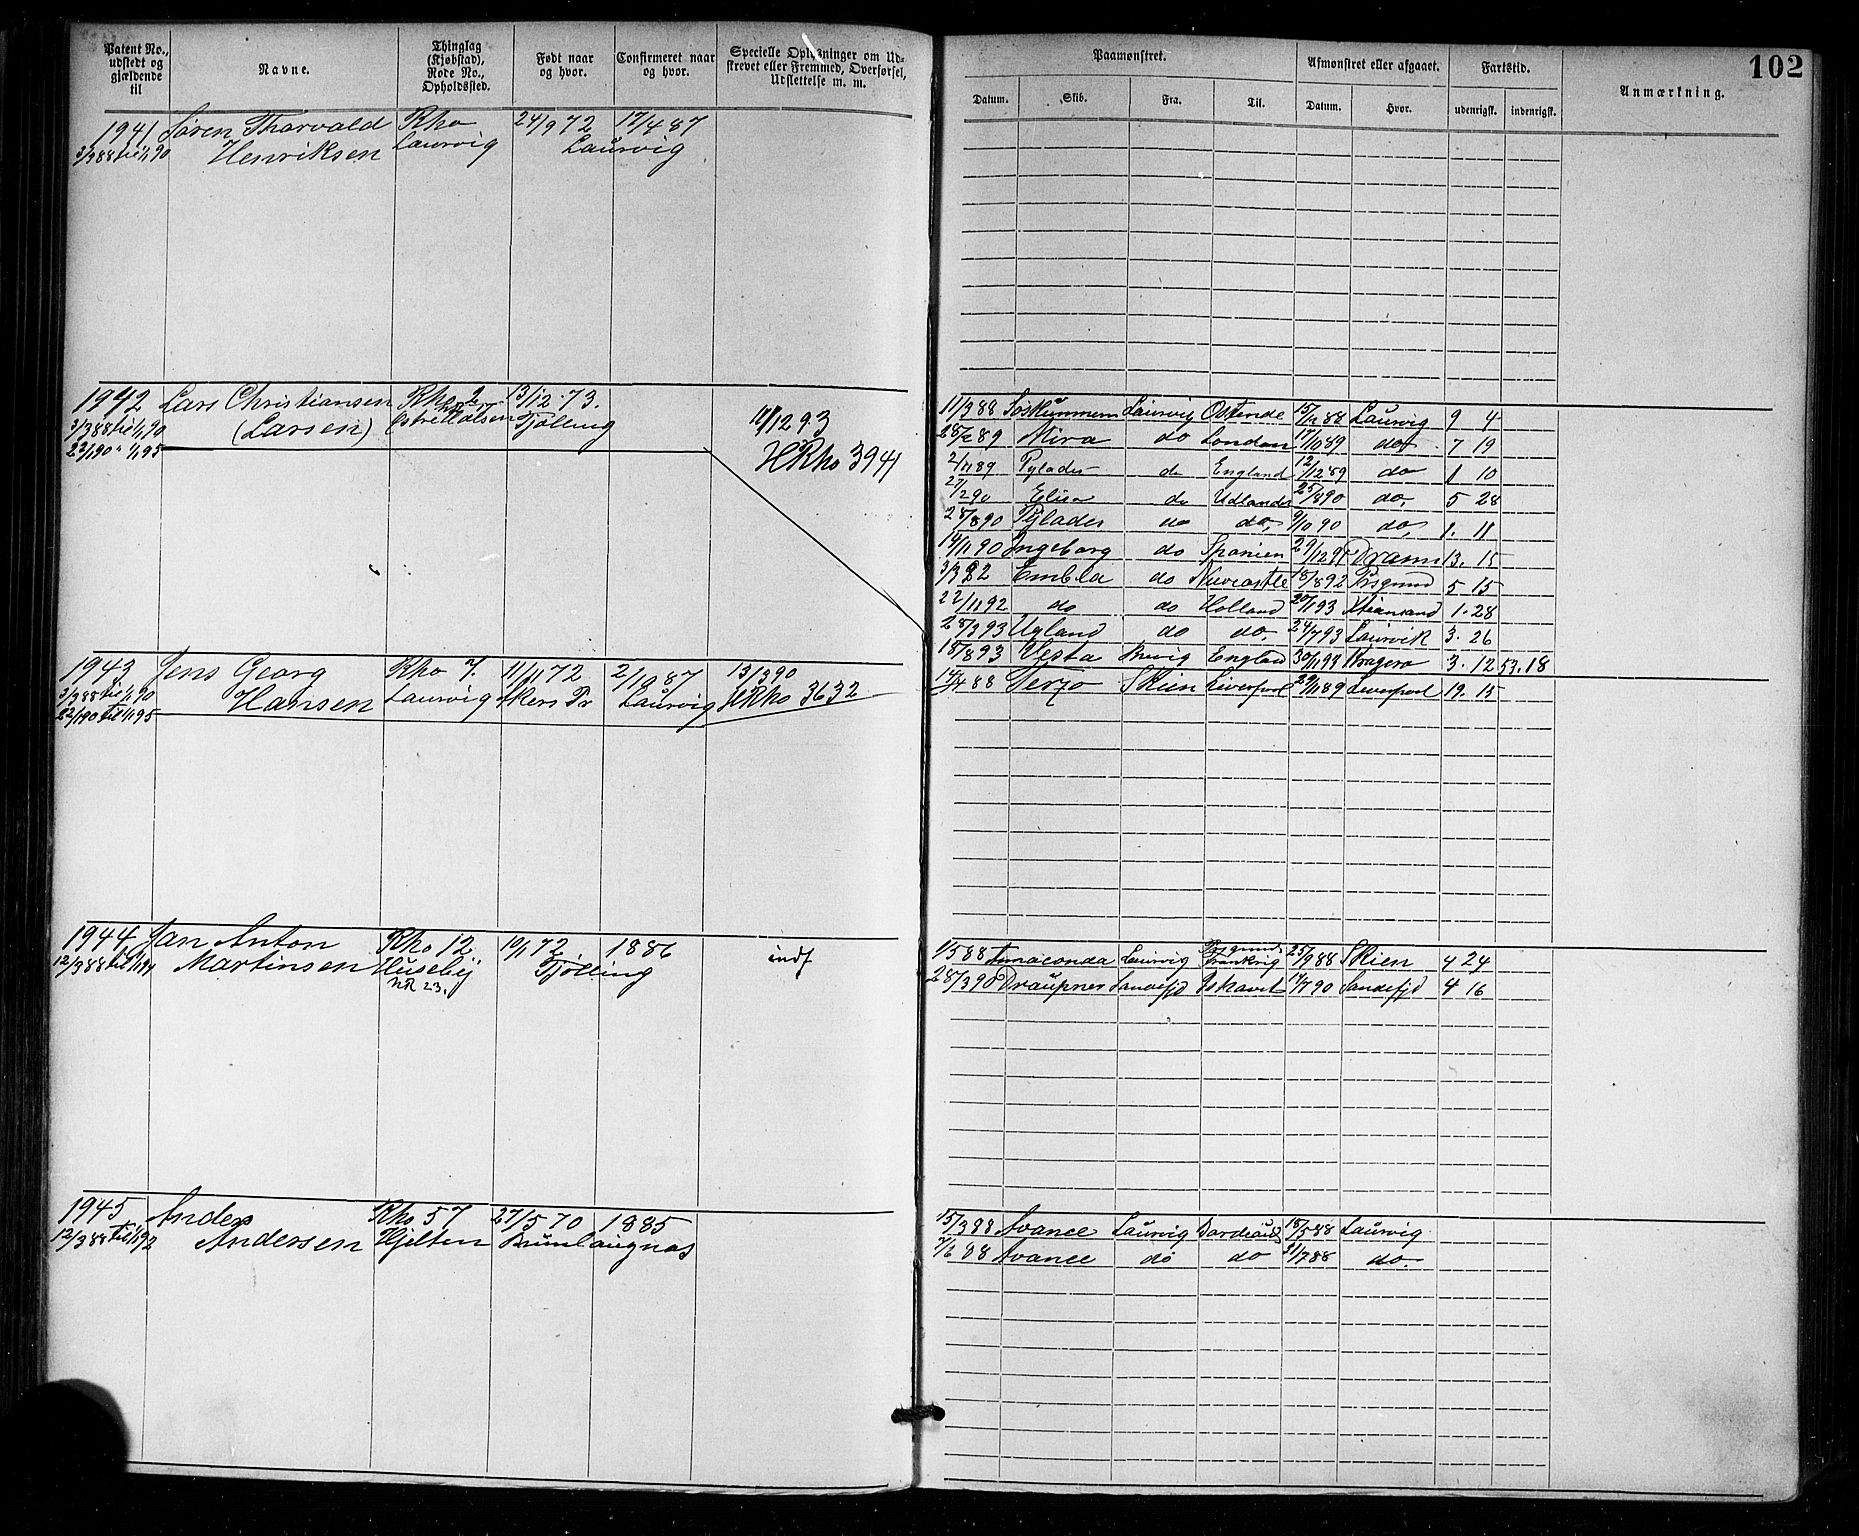 102
Patent No., udstedt og gjældende til
Navne.
Thinglag (Kjøbstad), Rode No., Opholdssted.
Født naar og hvor.
Confirmeret naar og hvor.
Specielle Oplysninger om Udstrevet eller Fremmed, Overførsel, Udslettelse m. m.
Paamønstret.
Afmønstret eller afgaaet.
Fartstid.
Anmærkning.
Datum. Skib. Fra. Til. Datum. Hvor. udenrigsk. indenrigsk.
1941 Søren Tharvald Rho 24/9 72 17/4 87
3/3 88 til 1/1 90 Henriksen Laurvig Laurvig
1942 Lars Christiansen Rho 2 13/12 73.
3/3 88 til 1/1 90 (Larsen) Østre Halsen Tjølling 11/12 93
22/1 90 " 1/1 95 HRho 3941
11/3 88 Laurvig Ostende 15/12 88 Laurvig 9 4
28/2 89 Mira do London 17/10 89 do 7 19
2/11 89 Pylades do England 12/12 89 do 1 10
27/2 90 Elise do Udlandet 25/8 90 do. 5 28
28/8 90 Pylades do do. 9/10 90 do, 1. 11
14/11 90 Ingeborg do Spanien 29/12 91 Dramn 13. 15
3/3 92 Embla do Newcastle 18/8 92 Psgrund 5 15
22/11 92 do do Holland 20/1 93 Xtiansand 1. 28
28/3 93 Ugland do do. 24/7 93 Laurvik 3. 26
18/8 93 Vesta Brevig England 30/11 93 Kragerø 3. 12 53. 18
1943 Jens Georg Rho 7. 11/11 72 2/10 87 13/3 90
3/3 88 til 1/1 90 Hansen Laurvig Skers Pr Laurvig HRho 3632
22/1 90 til 1/1 95
14/4 88 Terjo Skien Liverpool 29/11 89 Liverpool 19. 15
1944 Jan Anton Rho 12. 10/1 72 1886 indf
12/3 88 til 1/1 94 Martinsen Huseby Tjølling
NR 23.
1/5 88 Annaconda Laurvig Psgrund Frankrig 25/9 88 Skien 4 24
28/3 90 Draupner Sandefjd Ishavet 14/7 90 Sandefjd 4 16
1945 Anders Rho 57 27/5 70 1885
12/3 88 til 1/1 92 Andersen Hjelten Brunlaugnæs
15/3 88 Avance Laurvig Bordeaux 18/5 88 Laurvig
7/6 88 Avance do do 31/7 88 do.